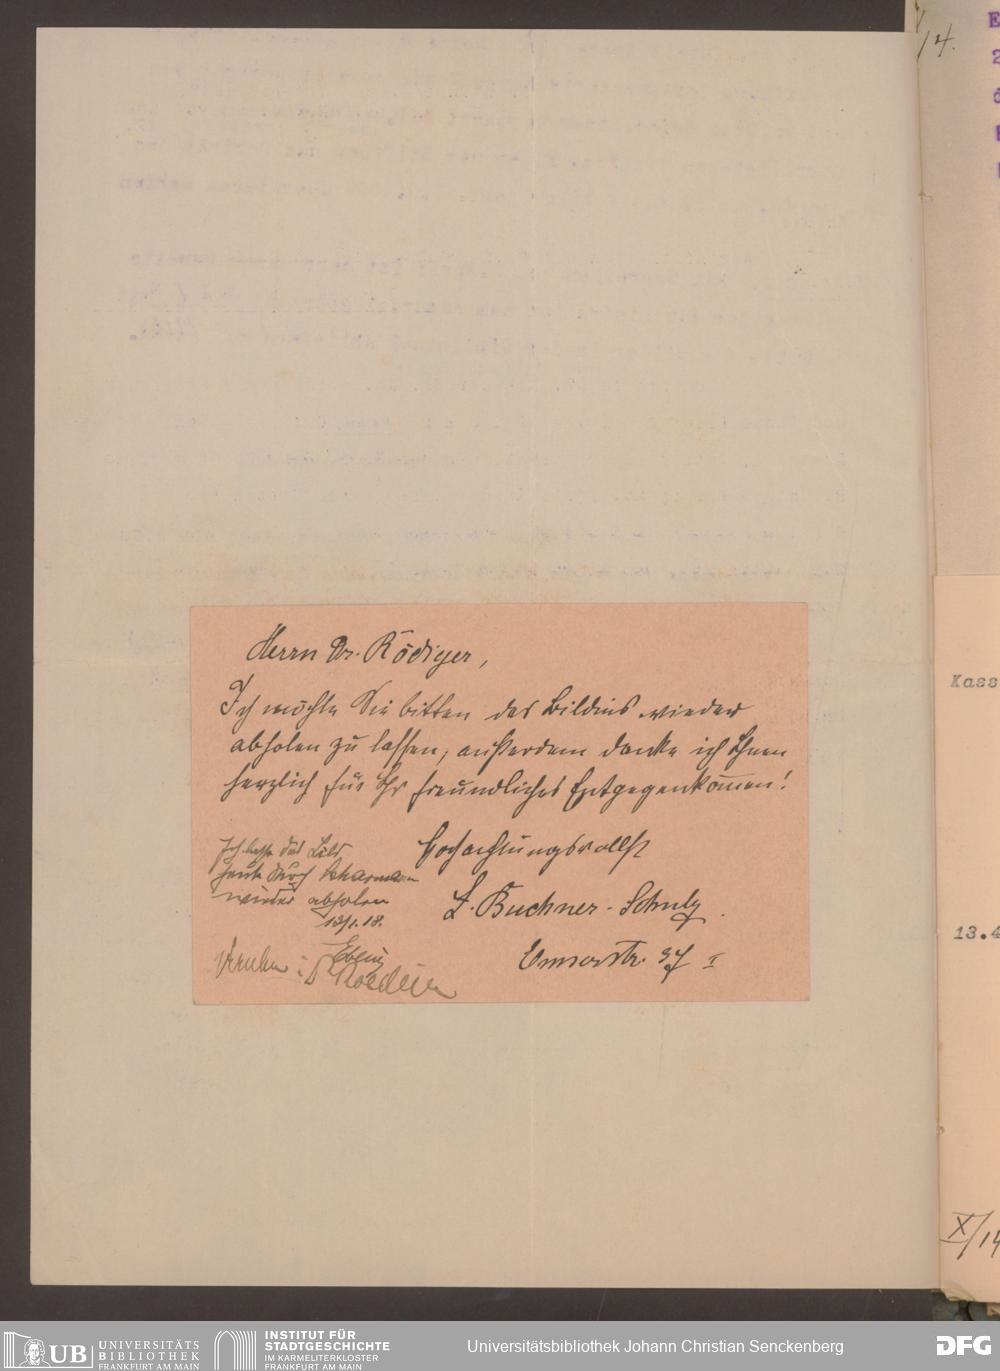 14.
Herrn Dr. Rödiger,
Ich möchte Sie bitten das Bildnis wieder
abholen zu lassen, außerdem danke ich Ihnen
herzlich für Ihr freundliches Entgegenkommen!
Hochachtungsvollst
L. Buchner-Schulz
Emserstr. 37 I
Ich lasse das Bild
heute durch
wieder abholen
13/1.18.
Ebeling
Dr Roediger
Kass
13.4
X/14
UB UNIVERSITÄTS
BIBLIOTHEK
FRANKFURT AM MAIN
INSTITUT FÜR
STADTGESCHICHTE
IM KARMELITERKLOSTER
FRANKFURT AM MAIN
Universitätsbibliothek Johann Christian Senckenberg
DFG